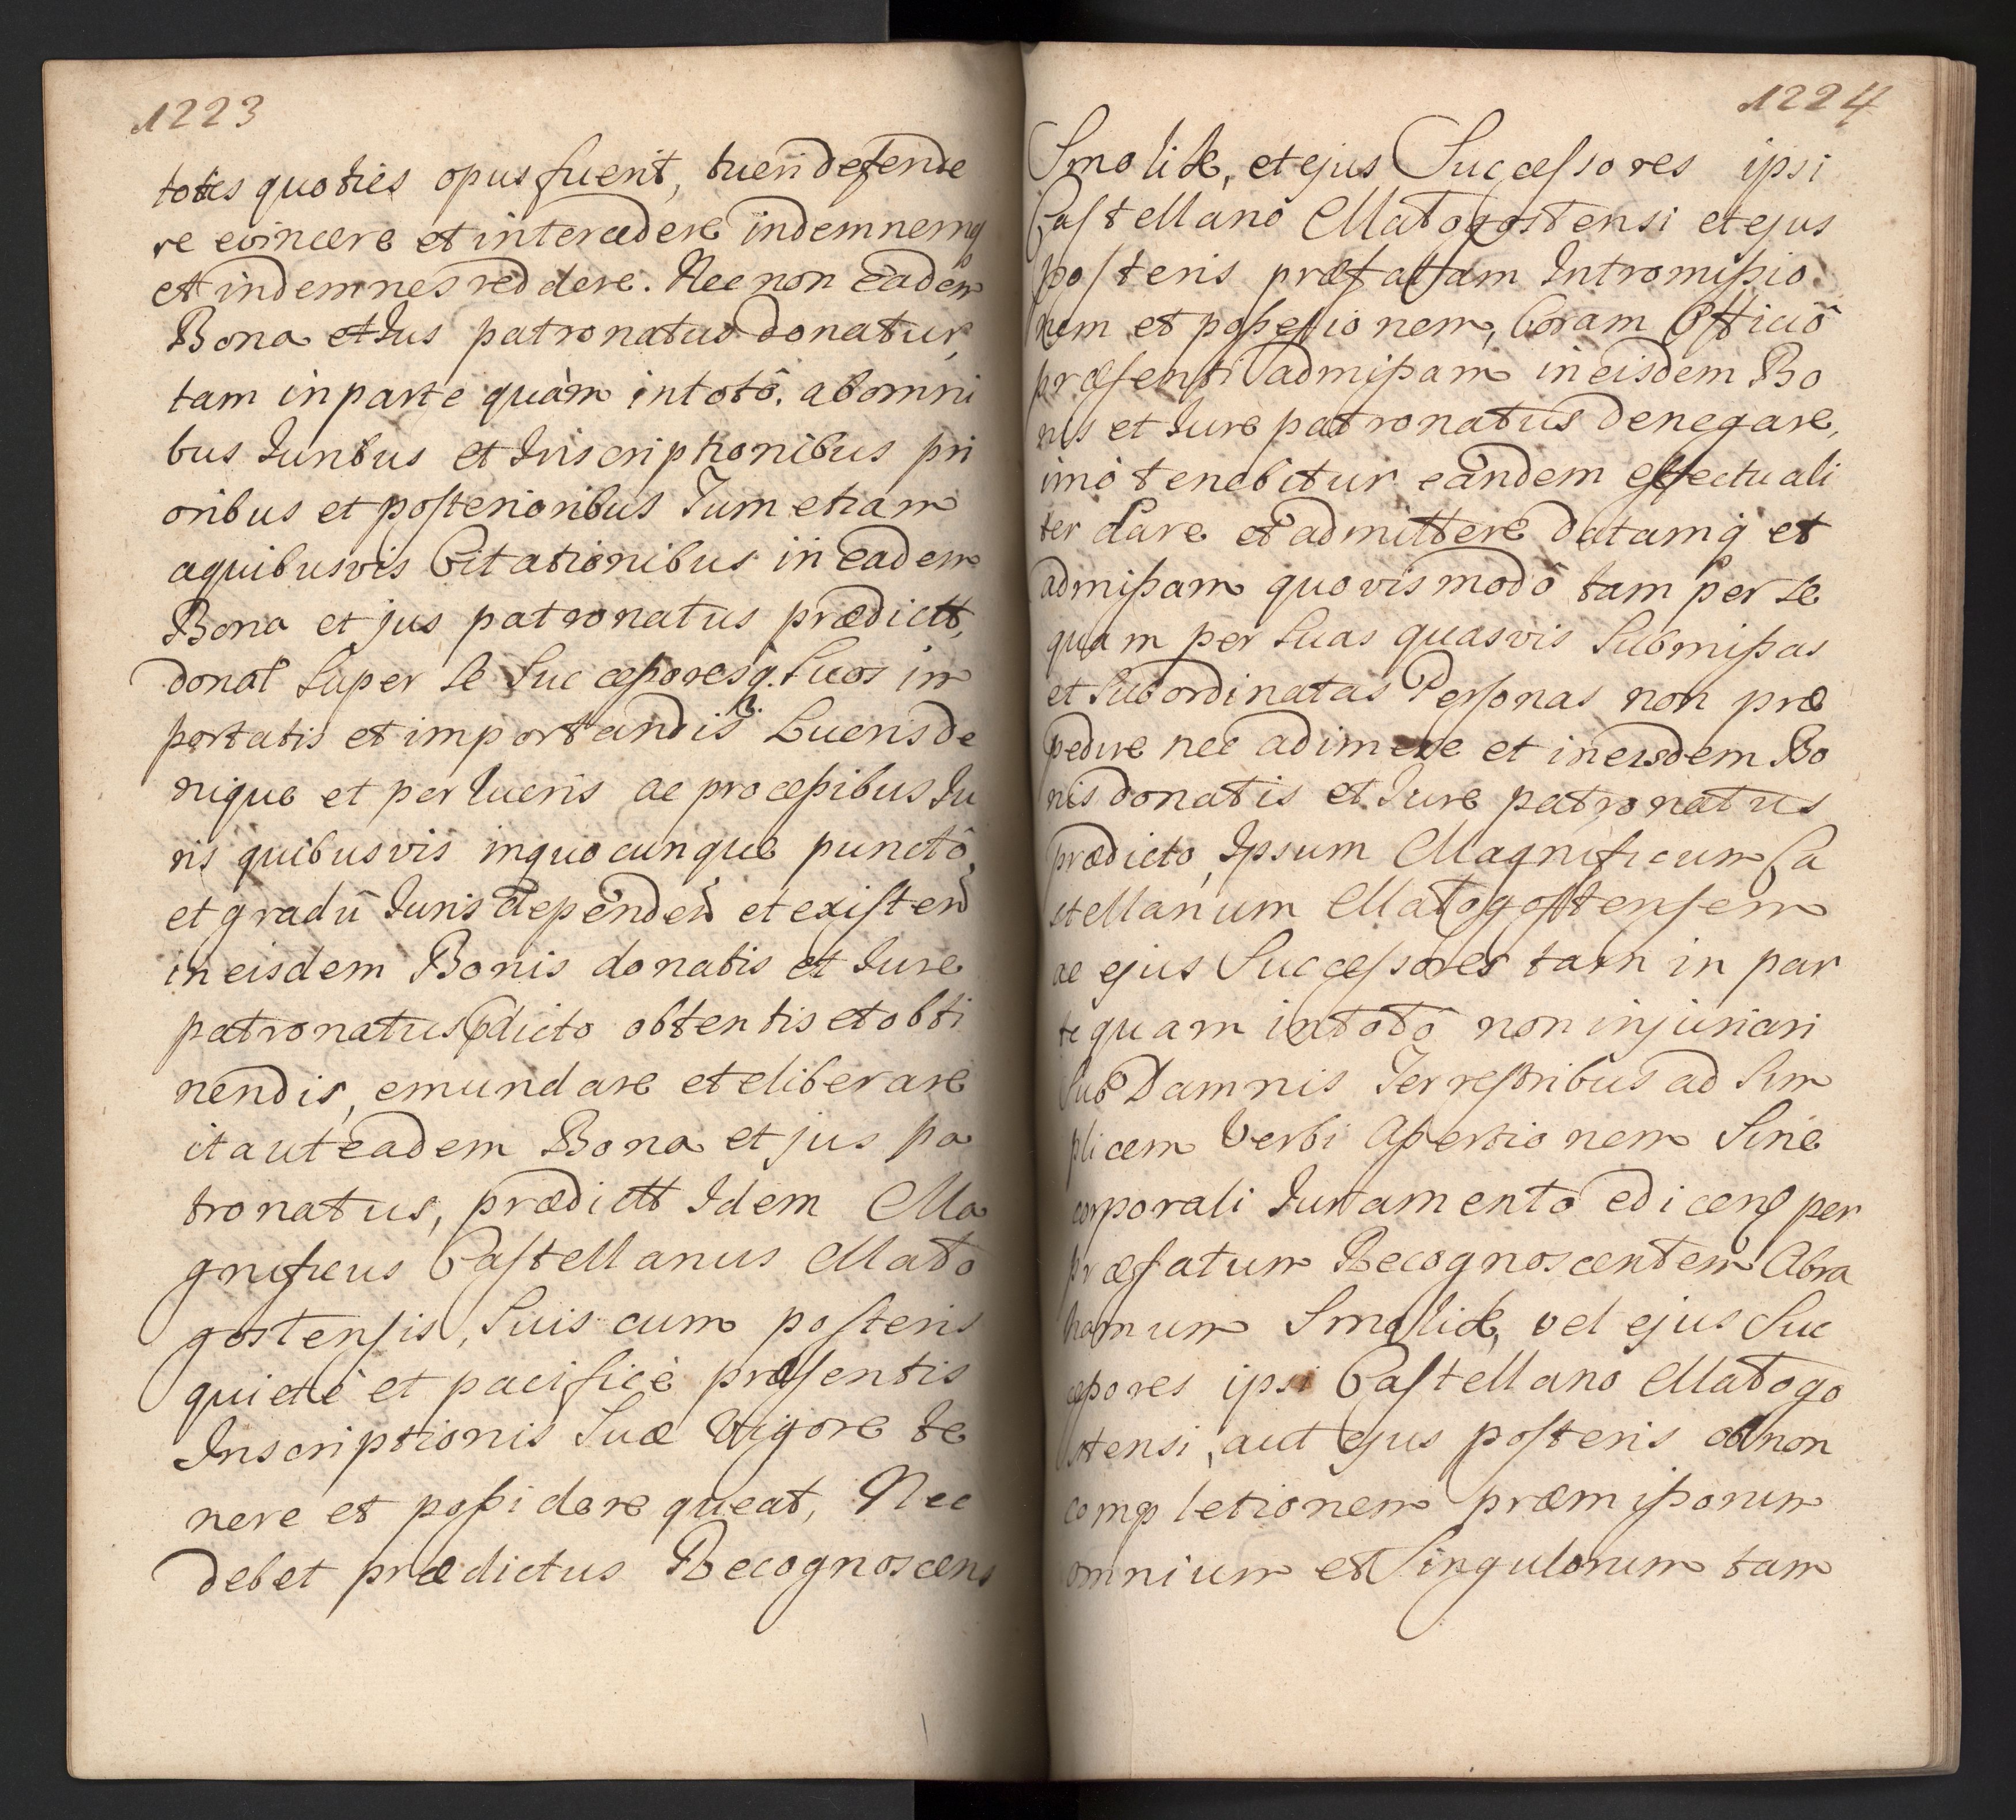 1223
toties quoties opus fuerit, tueri defende
re evincere et intercedere indemnemq
et indemnes reddere. Nec non Eadem
Bona et Jus patronatus donatur,
tam in parte quàm in totô, ab omni
bus Juribus et Inscriptionibus pri
oribus et posterioribus Tum etiam
a quibusvis Citationibus in Eadem
Bona et jus patronatus prædictt,
donat super se Successoresq. Suos im
portatis et importandis Lucris de
nique et perlucris ac processibus Ju
ris quibusvis in quocunque punctô
et gradû Juris dependen et existen
in eisdem Bonis donatis et Jure
patronatus pdicto obtentis et obti
nendis, emundare et eliberare
ita ut eadem Bona et jus pa
tronatus, prædictt Idem Ma
gnificus Castellanus Mało
gostensis, Suis cum posteris
quietè et pacificè præsentis
Inscriptionis Suæ Vigore te
nere et possidere queat, Nec
debet prædictus Recognoscens
1224
Smolik, et ejus Successores ipsi
Castellanô Małogostensi et ejus
posteris præfattam Intromissio
nem et possessionem, Coram Officiô
præsenti admissam in eisdem Bo
nis et Jure patronatus denegare,
imò tenebitur eandem effectuali
ter dare et admittere datamq et
admissam quovis modô tam per se
quam per suas quasvis Submissas
et Subordinatas Personas non præ
pedire nec adimere et in eisdem Bo
nis donatis et Jure patronatus
prædicto, Ipsum Magnificum Ca
stellanum Małogostensem
ac ejus Successores tam in par
te quam in totô non injuriari
Sub Damnis Terrestribus ad Sim
plicem Verbi Apertionem Sine
corporali Juramento edicens per
præfatum Recognoscentem Abra
hamum Smolik, vel ejus Suc
cessores ipsi Castellano Małogo
stensi, aut ejus posteris ob non
completionem præmissorum
omnium et Singulorum tam